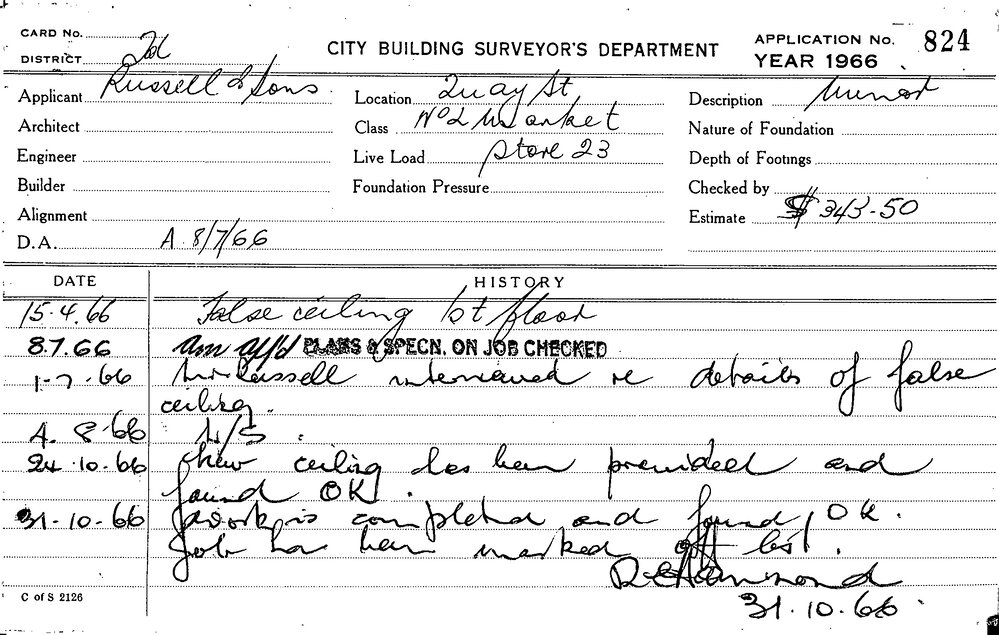 CARD No.
DISTRICT
CITY BUILDING SURVEYOR'S DEPARTMENT
APPLICATION No. 824
YEAR 1966
Applicant Russell & Sons
Location Quay St
Description Minor
Architect
Class No 2 Market
Nature of Foundation
Engineer
Live Load Store 23
Depth of Footings
Builder
Foundation Pressure
Checked by
Alignment
Estimate $ 343-50
D.A. A 8/7/66
DATE HISTORY
15.4.66 False ceiling 1st floor
8.7.66 PLANS & SPECN. ON JOB CHECKED
1-7-66 Mr Russell interviewed re details of false
ceiling.
4. 8.66 L/S.
24.10.66 New ceiling has been provided and
found OK.
31.10.66 Work is completed and found OK.
Job has been marked off list.
Hammond
31.10.66.
C of S 2126